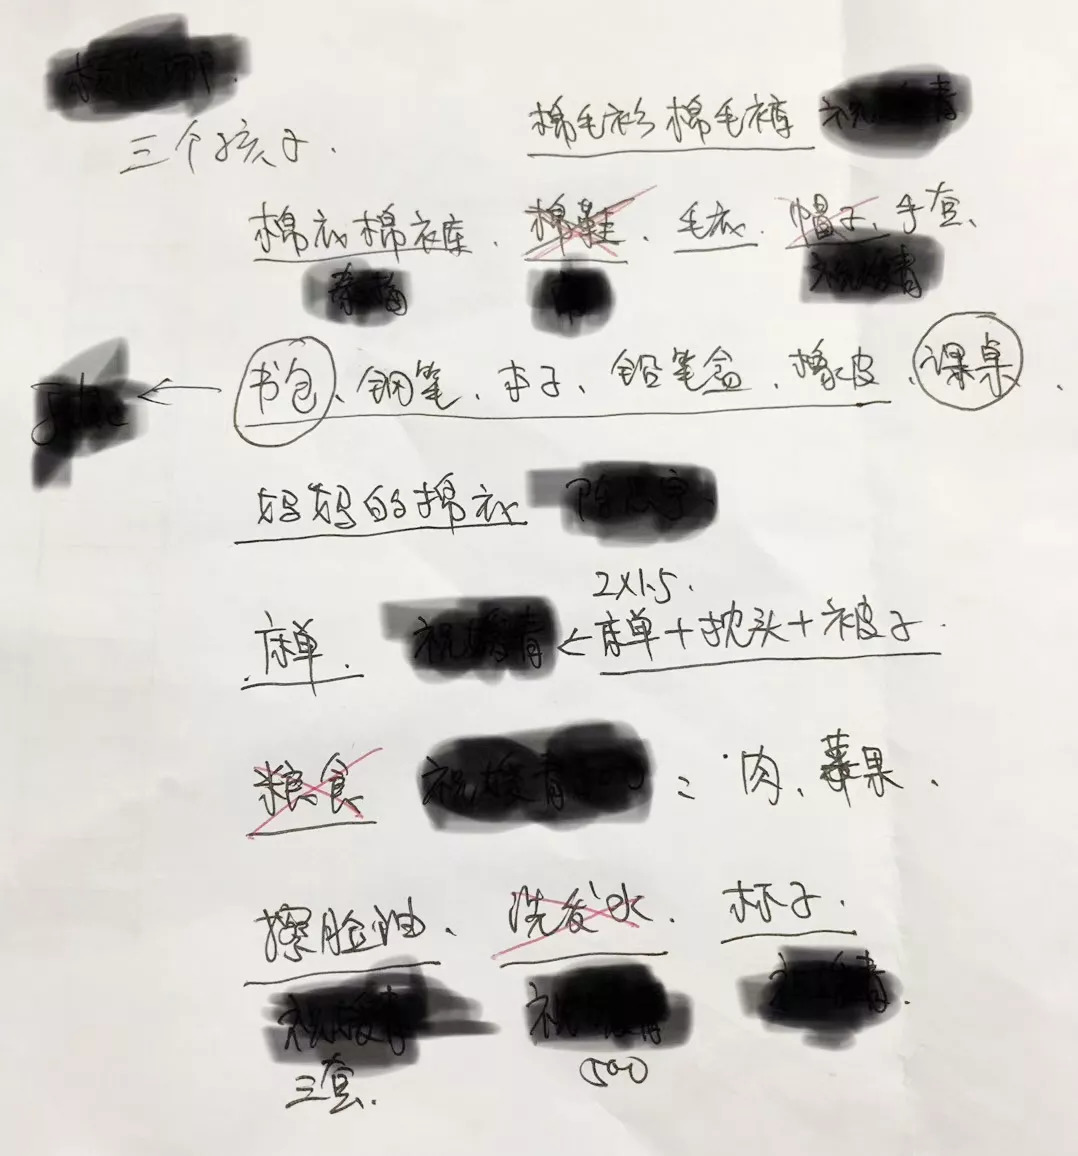 三个孩子.
棉毛衫 棉毛裤
棉衣棉衣裤、棉鞋、毛衣.帽子、手套、
书包、钢笔、本子、铅笔盒、橡皮、课桌、
妈妈的棉衣
2×1.5.
床单. ←床单+枕头+被子.
粮食 : 肉、苹果、
擦脸油、洗发水、杯子.
三套. 500